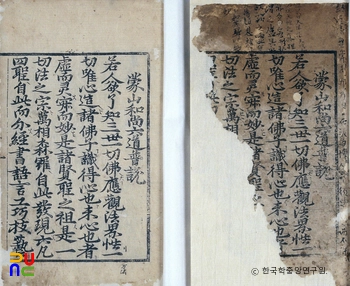 蒙山和尚六道普說
若人欲了知三世一切佛應觀法界性一
切唯心造諸佛子
虛而靈寂而妙是諸賢
切法之宗萬
蒙山和尚六道普說
若人欲了知三世一切佛應觀法界性一
切唯心造諸佛子識得心也未心也者
虛而靈寂而妙是諸賢聖之祖是一
切法之宗萬相森羅自此發現六凡
四聖自此而分經書語言工巧技藝
© 한국학중앙연구원